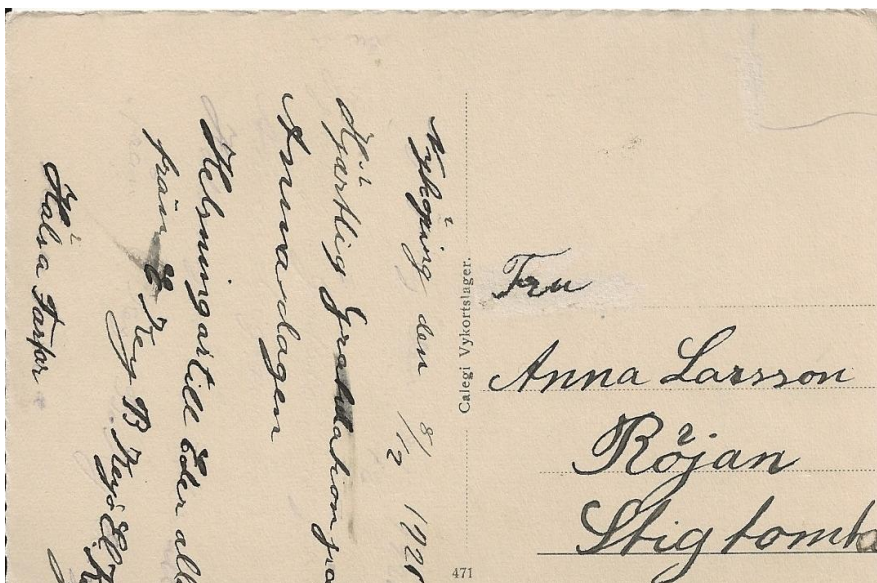 Nyköping den 8/12 192
Hjärtlig Gratulation på
Annadagen
Helsningar till Eder alla
från E
Hälsa Farfar
Calegi Vykortslager.
Fru
Anna Larsson
Röjan
Stigtomta
471